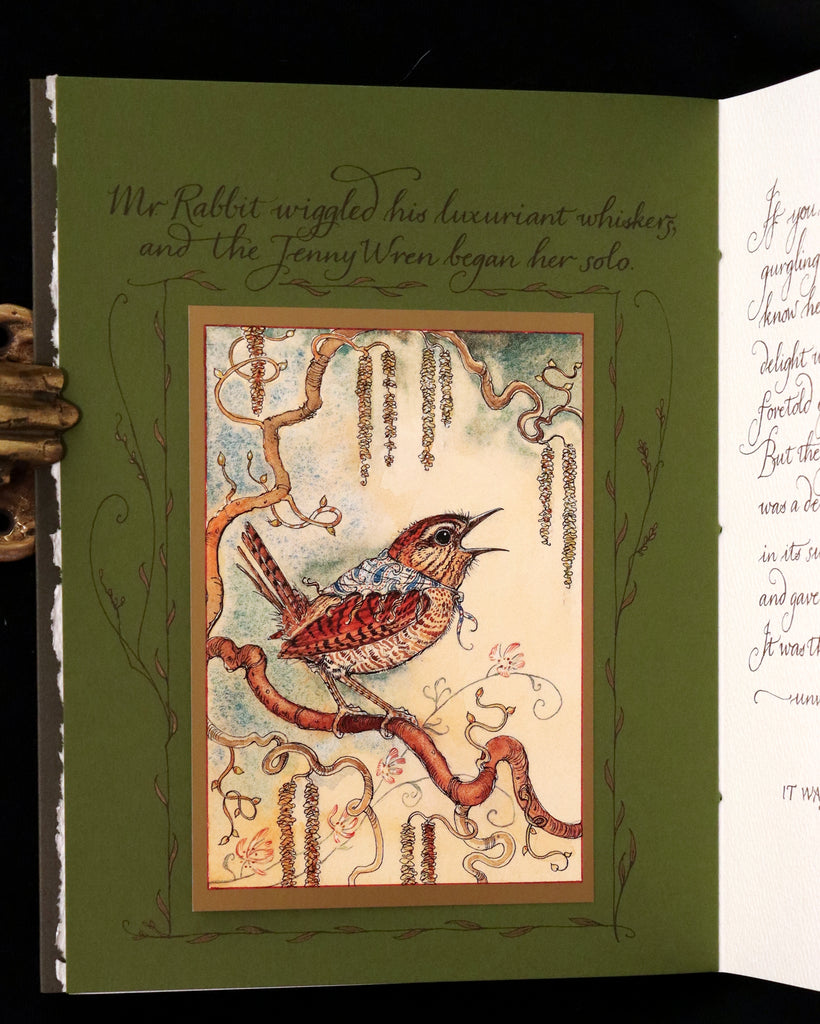 Mr Rabbit wiggled his luxuriant whiskers,
and the Jenny Wren began her solo.
If you
gurgling
know he
delight
foretold
But the
was a
in its
and gave
It was
IT